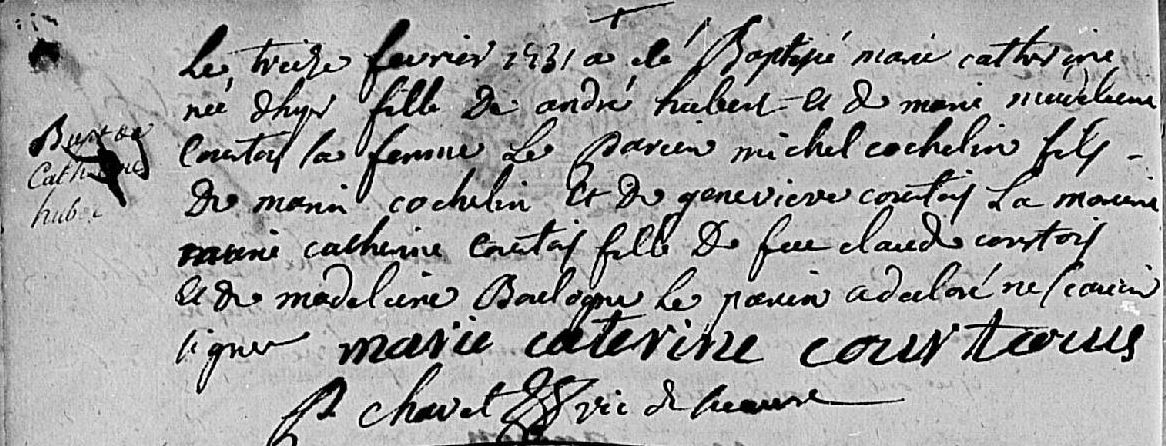 Le treize fevrier 1731 a eté Baptisé marie catherine
née d'hyer fille de andré hubert et de marie madelaine
Courtois sa femme Le Parein michel cochelin fils
Bapt de
Catherine
huber
de marin cochelin Et de genevieve courtois La mareine
marie catherine Courtois fille De feu claude courtois
et de madeleine Boulogne Le parein a declaré ne scavoir
signer marie caterine courtaus
P chavet vic de